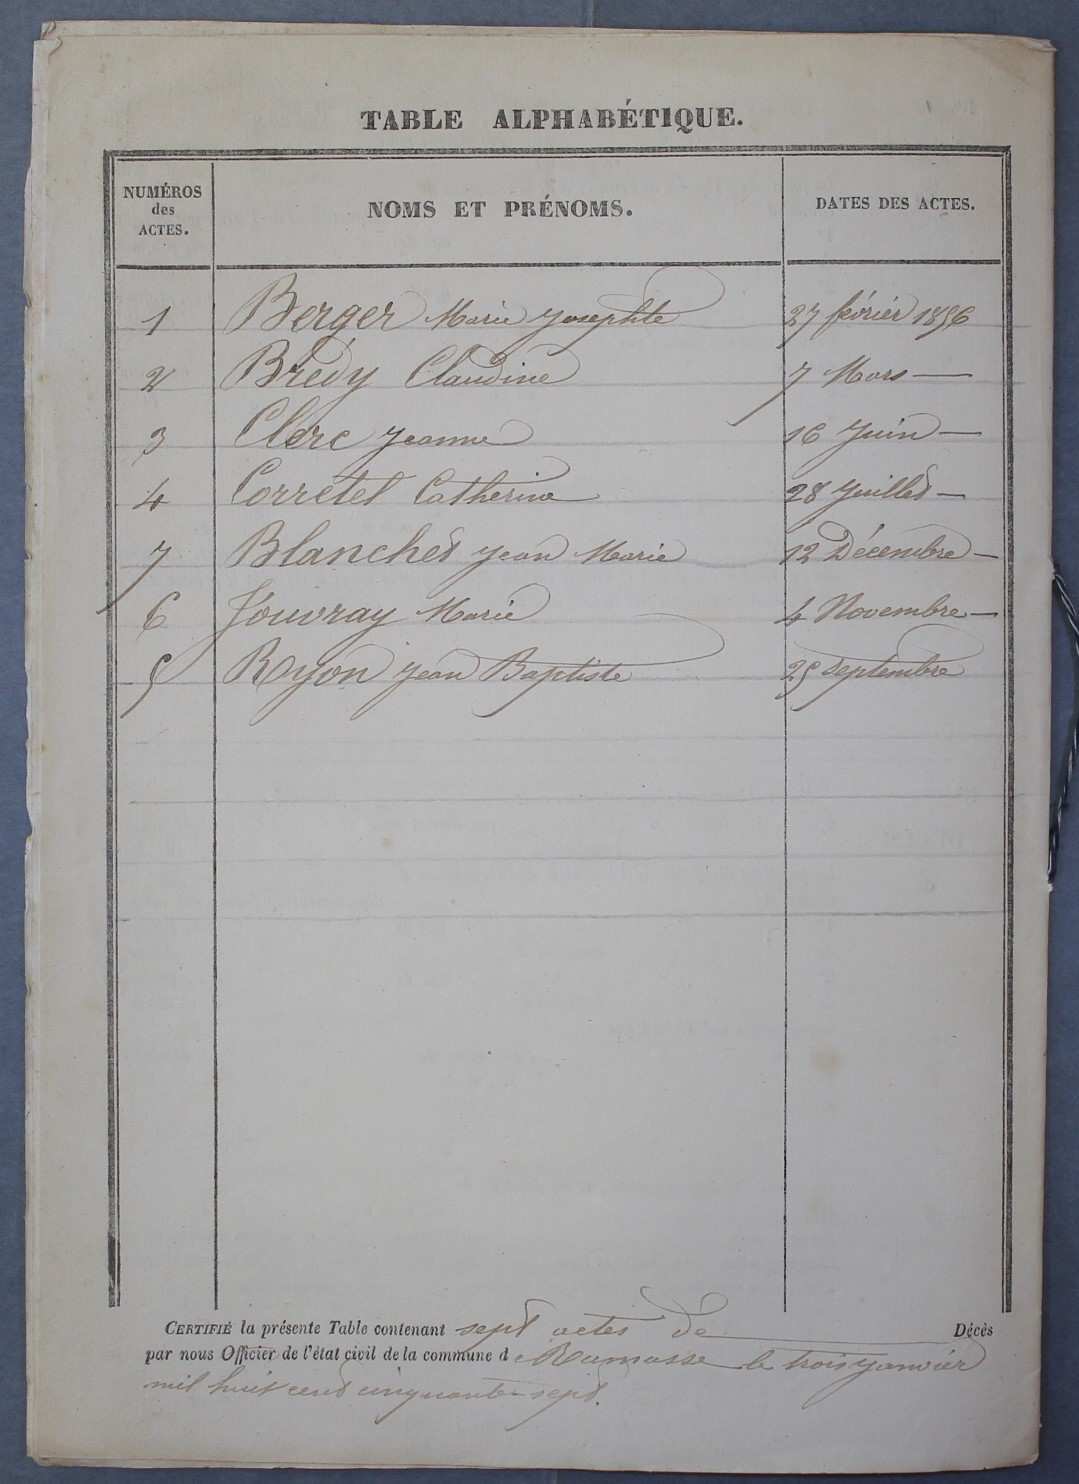 TABLE ALPHABÉTIQUE.
NUMÉROS
des
ACTES.
NOMS ET PRÉNOMS.
DATES DES ACTES.
1 Berger Marie Josephte 27 février 1856
2 Bredy Claudine 7 Mars —
3 Clerc Jeanne 16 Juin —
4 Corretel Catherine 28 Juillet —
7 Blanchet Jean Marie 12 Décembre —
6 Jouvray Marie 4 Novembre —
5 Ryon Jean Baptiste 25 septembre
CERTIFIÉ la présente Table contenant sept actes de Décès
par nous Officier de l'état civil de la commune de Ramasse le trois Janvier
mil huit cent cinquante-sept.